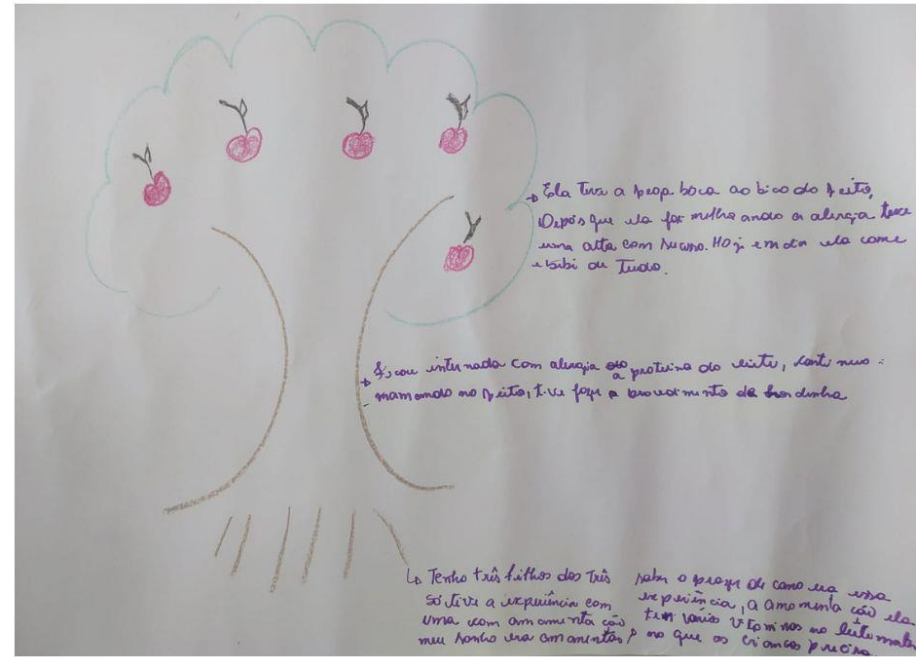 Ela tive a pega boca ao bico do peito,
Depois que ela foi melhorando a alergia teve
uma alta com sucesso. Hoje em dia ela come
e bibi de Tudo.
Ficou internada com alergia a proteina do leite, continuou
mamando no peito, tive
Tenho três filhos dos três
só tive a experiência com
uma com amamentação
meu sonho era amamentar p
saber o prazer de como era essa
experiência, a amamentação ela
tem varias vitaminas no leite materno
no que as crianças precisa